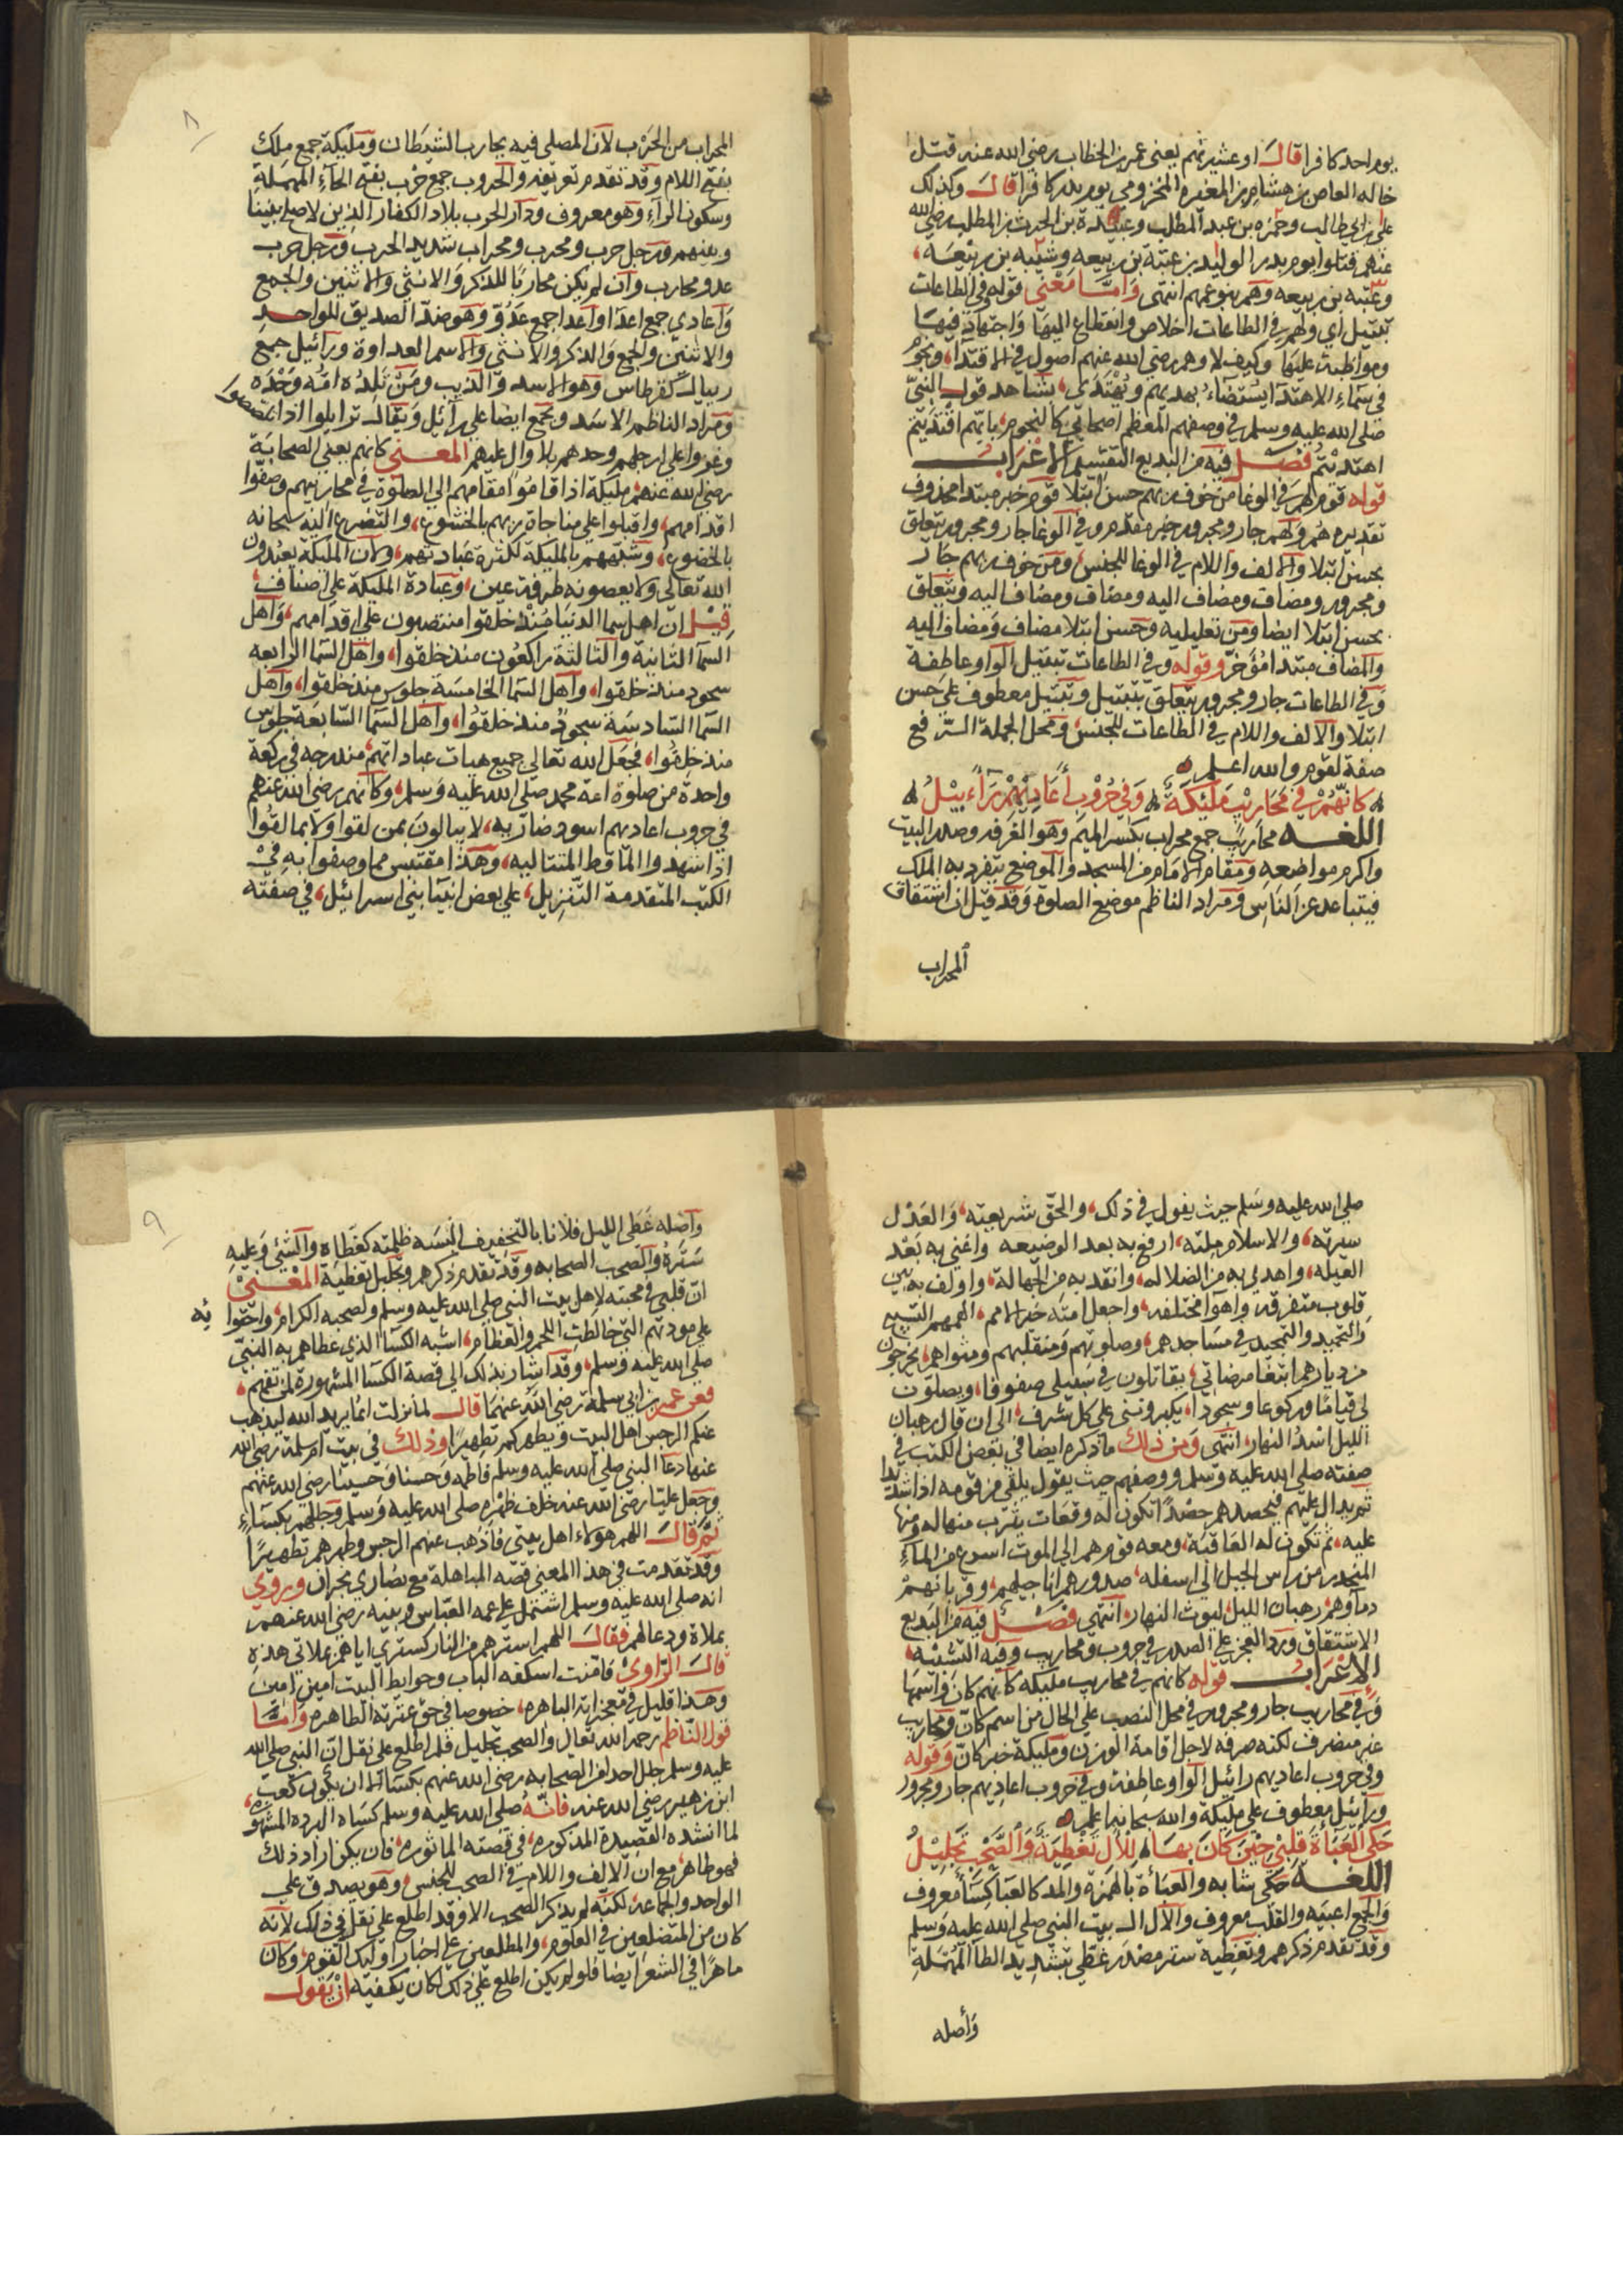 يوم احد كافرا قال او عشيرتهم يعني عمر بن الخطاب رضي الله عنه قتل
خاله العاص بن هشام بن المغيره المخزومي يوم بدر كافرا قال وكذلك
علي بن ابي طالب وحمزه بن عبد المطلب وعبيدة بن الحرث بن المطلب رضي الله
عنهم قتلوا يوم بدر الوليد بن عتبة بن ربيعه وشيبه بن ربيعه
وعتبه بن ربيعه وهم بنو عمهم انتهى واما معنى قوله في الطاعات
تبتيل اي ولهم في الطاعات اخلاص وانقطاع اليها واجتهاد فيها
ومواظبة عليها وكيف لا وهم رضي الله عنهم اصول في الاقتدا، ونجوم
في سماء الاهتدا يستضاء بهديهم ويهتدى، شاهد قول النبي
صلى الله عليه وسلم في وصفهم المعظم اصحابي كالنجوم، بايهم اقتديتم
اهتديتم فصل فيه من البديع التقسيم الاعراب
قوله قوم لهم في الوغا من خوف ربهم حسن ابتلا قوم خبر مبتدا محذوف
تقديره هم ولهم جار ومجرور خبر مقدم وفي الوغا جار ومجرور يتعلق
بحسن ابتلا والالف واللام في الوغا للجنس، ومن خوف ربهم جار
ومجرور ومضاف ومضاف اليه ومضاف ومضاف اليه ويتعلق
بحسن ابتلا ايضا ومن تعليليه وحسن ابتلا مضاف ومضاف اليه
والمضاف مبتدا مؤخر وقوله وفي الطاعات تبتيل الواو عاطفة
وفي الطاعات جار ومجرور يتعلق بتبتيل وتبتيل معطوف على حسن
ابتلا والالف واللام في الطاعات للجنس، ومحل الجملة الرفع
صفة لقوم والله اعلم
كانهم في محاريب ملئكة وفي حروب اعاديهم رآءبيل
اللغه محاريب جمع محراب بكسر الميم وهو الغرفه وصدر البيت
واكرم مواضعه ومقام الامام من المسجد والموضع يتفرد به الملك
فيتباعد عن الناس ومراد الناظم موضع الصلوة وقد قيل ان اشتقاق
المحراب
٨
المحراب من الحرب لان المصلي فيه يحارب الشيطان ومليكة جمع ملك
بفتح اللام وقد تقدم تعريفه والحروب جمع حرب بفتح الحآء المهملة
وسكون الرآء وهو معروف ودار الحرب بلاد الكفار الذين لا صلح بيننا
وبينهم ورجل حرب ومحرب ومحراب شديد الحرب ورجل حرب
عدو محارب وان لم يكن محاربا للذكر والانثى والاثنين والجمع
واعادي جمع اعدا واعدا جمع عدو وهو ضد الصديق للواحد
والاثنين والجمع والذكر والانثى والاسم العداوة ورآئيل جمع
ريبال كقرطاس وهو الاسد والذيب ومن تلده امه وحده
ومراد الناظم الاسد ويجمع ايضا على رآئيل ويقال ترابلوا اذا تلصصوا
وغزوا على ارجلهم وحدهم بلا وال عليهم المعنى كانهم يعني الصحابة
رضي الله عنهم، مليكة اذا قاموا مقامهم الى الصلوة في محاريبهم وصفوا
اقدامهم، واقبلوا على مناجاة ربهم بالخشوع، والتضرع اليه سبحانه
بالخضوع، وشبههم بالمليكة لكثرة عباداتهم، ولان المليكة يعبدون
الله تعالى ولا يعصونه طرفة عين، وعبادة المليكة على اصناف،
قيل ان اهل سما الدنيا منذ خلقوا منتصبون على اقدامهم، واهل
السمآ الثانية والثالثة راكعون منذ خلقوا، واهل السما الرابعه
سجود منذ خلقوا، واهل السما الخامسة جلوس منذ خلقوا، واهل
السما السادسة سجود منذ خلقوا، واهل السما السابعة جلوس
منذ خلقوا، فجعل الله تعالى جميع هيات عباداتهم، مندرجه في ركعة
واحدة من صلوة امة محمد صلى الله عليه وسلم، وكانهم رضي الله عنهم
في حروب اعاديهم اسود ضاربه، لا يبالون بمن لقوا ولا بما لقوا
اذا شهدوا الماقط المتتاليه، وهذا مقتبس مما وصفوا به في
الكتب المتقدمة التنزيل، على بعض انبيآ بني اسرائيل، في صفته
صلى الله عليه وسلم حيث يقول في ذلك، والحق شريعته، والعدل
سيرته، والاسلام ملته، ارفع به بعد الوضيعه واغني به بعد
العيله، واهدي به من الضلاله، وانقذ به من الجهالة، واولف به بين
قلوب متفرقه واهوآ مختلفه، واجعل امته خير الامم، الهمهم التسبيح
والتحميد والتمجيد في مساجدهم، وصلوتهم ومنقلبهم ومثواهم، يخرجون
من ديارهم ابتغا مرضاتي، يقاتلون في سبيلي صفوفا، ويصلون
لي قياما وركوعا وسجودا، يكبرونني على كل شرف، الى ان قال رهبان
الليل اسد النهار، انتهى ومن ذلك ما ذكره ايضا في بعض الكتب في
صفته صلى الله عليه وسلم ووصفهم حيث يقول يلقى من قومه اذا شديدا
ثم يدال عليهم فيحصدهم حصدا تكون له وقعات يثرب منها له ومنها
عليه، ثم تكون له العاقبة، ومعه قوم هم الى الموت اسرع من المآء
المنحدر من راس الجبل الى اسفله، صدورهم اناجيلهم، وقربانهم
دمآوهم، رهبان الليل، ليوث النهار، انتهى فصل فيه من البديع
الاشتقاق ورد العجز على الصدر في حروب ومحاريب وفيه التشبيه
الاعراب قوله كانهم في محاريب مليكه كانهم كان واسمها
وفي محاريب جار ومجرور في محل النصب على الحال من اسم كان ومحاريب
غير منصرف لكنه صرفه لاجل اقامة الوزن ومليكة خبر كان وقوله
وفي حروب اعاديهم رائيل الواو عاطفة وفي حروب اعاديهم جار ومجرور
ورآئيل معطوف على مليكة والله سبحانه اعلم
حكى العبآءة قلبي حين كان بها للآل تغطية والصحب تجليل
اللغه حكى شابه والعبآءة بالهمزة والمد كالعبا كسآء معروف
والجمع اعبيه والقلب معروف والآل ال بيت النبي صلى الله عليه وسلم
وقد تقدم ذكرهم وتغطية ستر مصدر غطى بتشديد الطآ المهملة
وأصله
٩
وأصله غطى الليل فلانا بالتخفيف البسه ظلمته كغطاه والشئ وعليه
ستره والصحب الصحابه وقد تقدم ذكرهم وتجليل تغطية المعنى
ان قلبي في محبته لاهل بيت النبي صلى الله عليه وسلم ولصحبه الكرام، واحتوائه
على مودتهم التي خالطت اللحم والعظام، اشبه الكسآ الذي غطاهم به النبي
صلى الله عليه وسلم، وقد اشار بذلك الى قصة الكسآ المشهورة لمن تفهم،
فعن عمر بن ابي سلمة رضي الله عنهما قال لما نزلت انما يريد الله ليذهب
عنكم الرجس اهل البيت ويطهركم تطهيرا وذلك في بيت ام سلمة رضي الله
عنها دعا النبي صلى الله عليه وسلم فاطمه وحسنا وحسينا رضي الله عنهم
وجعل عليا رضي الله عنه خلف ظهره صلى الله عليه وسلم وجللهم بكسآء
ثم قال اللهم هولاء اهل بيتي فاذهب عنهم الرجس وطهرهم تطهيرا
وقد تقدمت في هذا المعنى قصه المباهلة مع نصارى نجران وروي
انه صلى الله عليه وسلم اشتمل على عمه العباس وبنيه رضي الله عنهم
بملاة ودعا لهم فقال اللهم استرهم من النار كستري اياهم بملاتي هذه
قال الراوي فامنت اسكفه الباب وحوايط البيت امين امين
وهذا قليل في معجزاته الباهره، خصوصا في حق عترته الطاهره واما
قول الناظم رحمه الله تعالى والصحب تجليل فلم اطلع على نقل ان النبي صلى الله
عليه وسلم جلل احدا من الصحابه رضي الله عنهم بكسآ الا ان يكون كعب
ابن زهير رضي الله عنه فانه صلى الله عليه وسلم كساه البرده المشهوره،
لما انشده القصيدة المذكوره، في قصته الماثوره، فان يكن اراد ذلك
فهو ظاهر، مع ان الالف واللام في الصحب للجنس، وهو يصدق على
الواحد والجماعة، لكنه لم يذكر الصحب الا وقد اطلع على نقل في ذلك لانه
كان من المتضلعين في العلوم، والمطلعين على اخبار اوليك القوم، وكان
ماهرا في الشعر ايضا فلو لم يكن اطلع على ذلك لكان يكفيه ان يقول